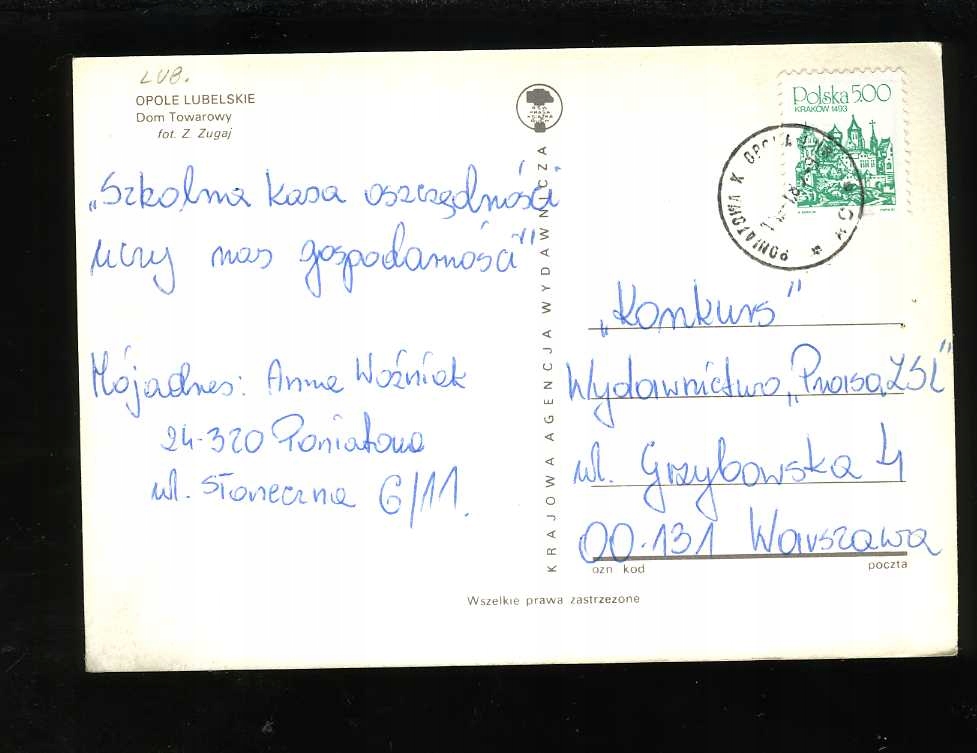 LUB.
OPOLE LUBELSKIE
Dom Towarowy
fot. Z. Zugaj
„Szkolna kasa oszczędności
uczy nas gospodarności"
Mój adres: Anna Woźniak
24-320 Poniatowa
ul. Słoneczna 6/11.
KRAJOWA AGENCJA WYDAWNICZA
Polska 500
KRAKÓW 1493
PONIATOWA K. OPOLA LUB.
„Konkurs"
Wydawnictwo „Prasa ZSL"
ul. Grzybowska 4
00-131 Warszawa
ozn kod
poczta
Wszelkie prawa zastrzeżone